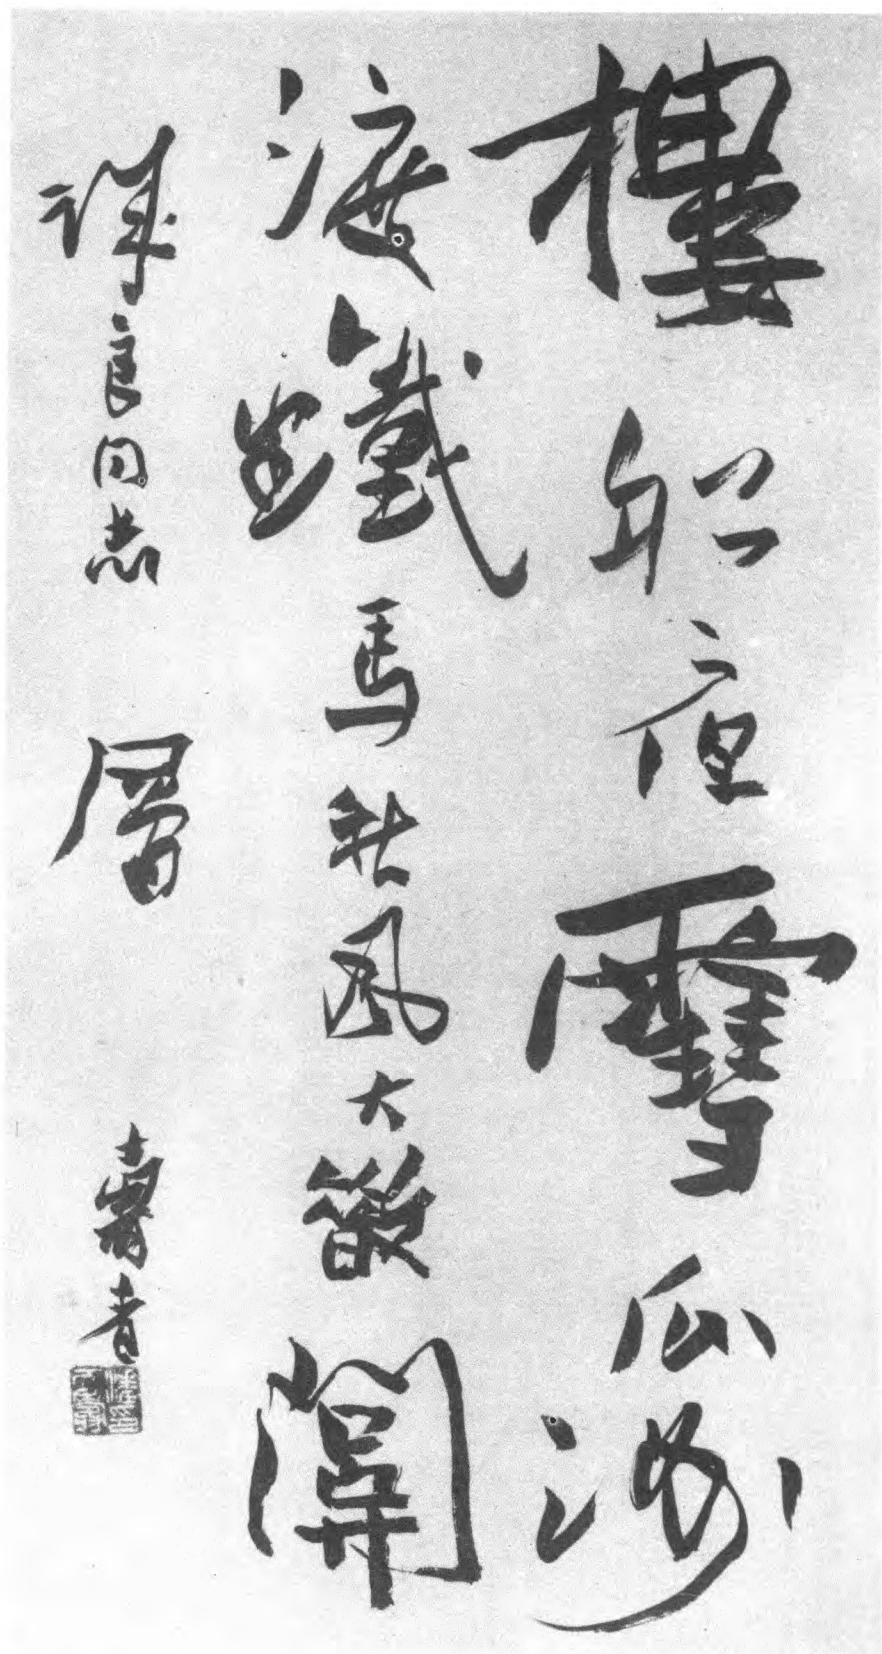 樓船夜雪瓜洲
渡鐵馬秋風大散關
誅良同志 屬
壽者